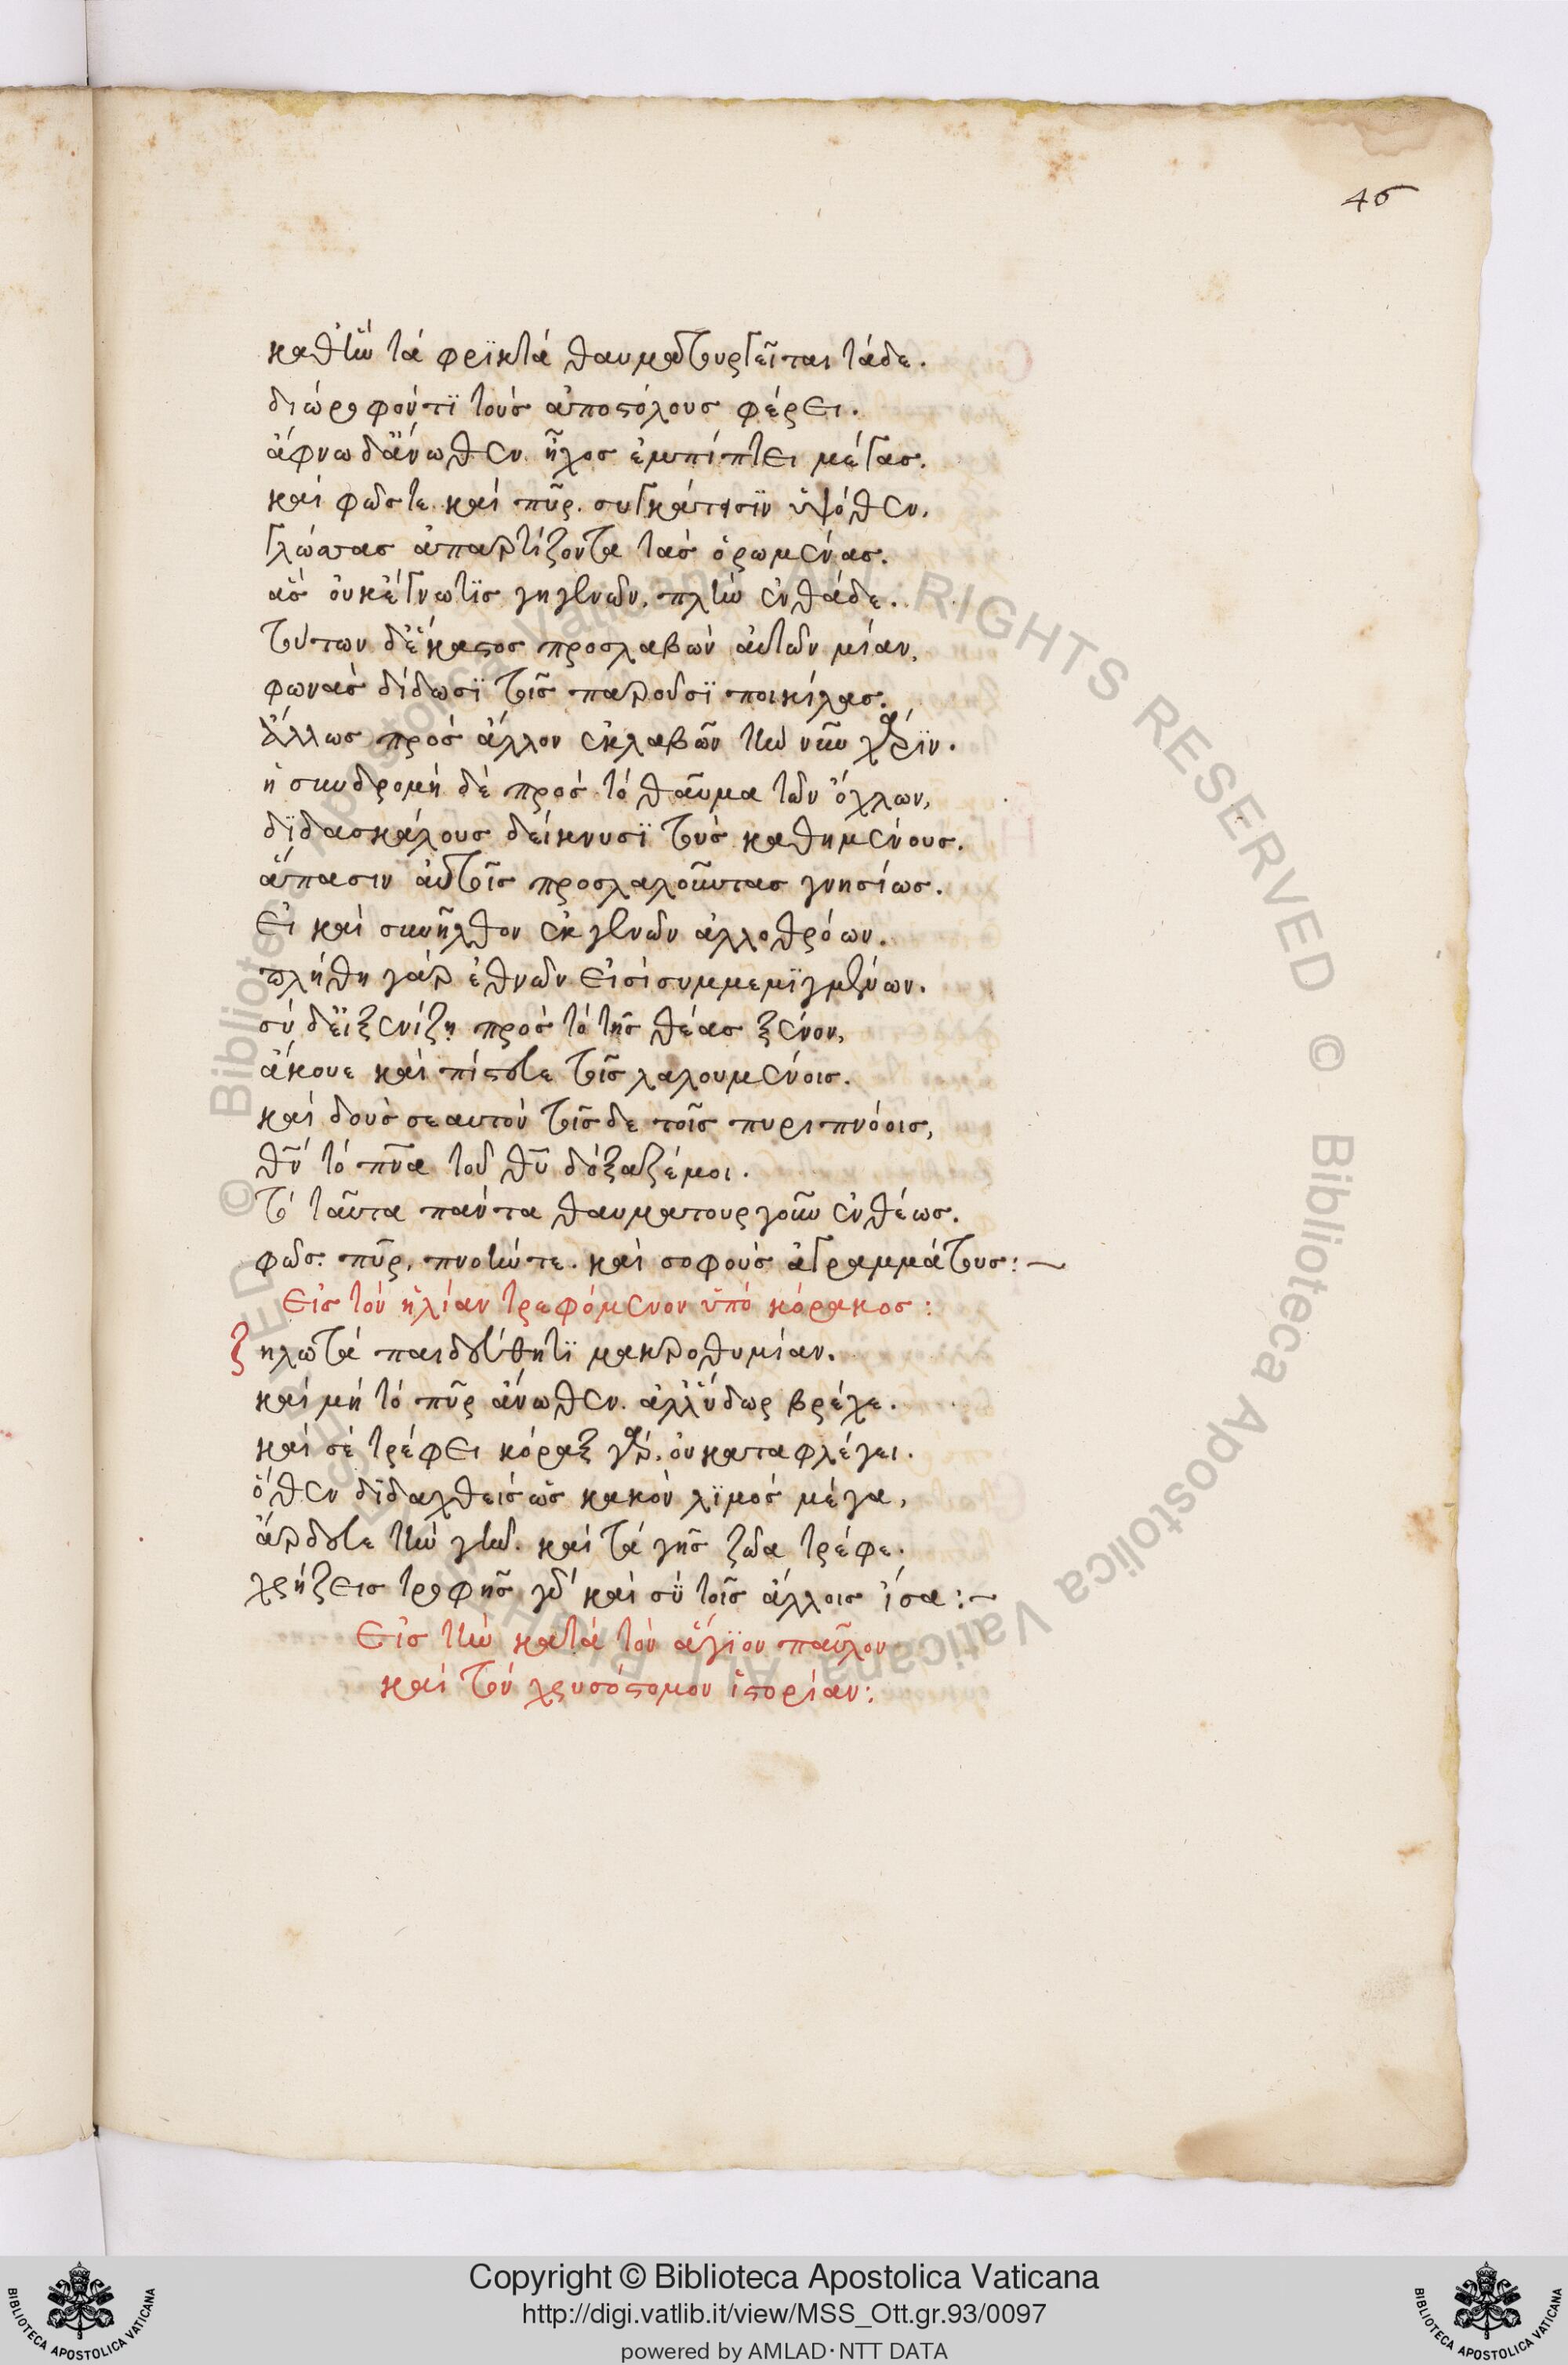 46
καθ ἣν τὰ φρϊκτὰ θαυματουργεῖται τάδε.
διώροφον τϊ τοὺς ἀποστόλους φέρει.
ἄφνω δ' ἄνωθεν ἦχος ἐμπίπτει μέγας.
καὶ φῶς τε καὶ πῦρ. συγκάτεισϊν ὑψόθεν.
γλώττας ἀπαρτίζοντα τὰς ὁρωμένας.
ἃς οὐκ ἔγνω τϊς γηγενῶν, πλὴν ἐνθάδε.
τούτων δ' ἕκαστος προσλαβὼν αὐτῶν μίαν,
φωνὰς δίδωσϊ τοῖς παροῦσϊ ποικίλας.
ἄλλως πρὸς ἄλλον ἐκλαβὼν τὴν νῦν χάρϊν.
ἡ συνδρομὴ δὲ πρὸς τὸ θαῦμα τῶν ὄχλων,
δϊδασκάλους δείκνυσϊ τοὺς καθημένους.
ἅπασιν αὐτοῖς προσλαλοῦντας γνησίως.
εἰ καὶ συνῆλθον ἐκ γενῶν ἀλλοθρόων.
πλήθη γὰρ ἐθνῶν εἰσὶ συμμεμϊγμένων.
σὺ δ' εἰ ξενίζη πρὸς τὸ τῆς θέας ξένον,
ἄκουε καὶ πίστευε τοῖς λαλουμένοις.
καὶ δοὺς σεαυτὸν τοῖσδε τοῖς πυριπνόοις,
θν τὸ πνα τοῦ θυ δόξαζέ μοι.
τὸ ταῦτα πάντα θαυματουργοῦν ἐνθέως.
φῶς. πῦρ, πνοήν τε. καὶ σοφοὺς ἀγραμμάτους:
εἰς τὸν ἠλίαν τρεφόμενον ὑπὸ κόρακος:
ζηλωτὰ παιδεύθητϊ μακροθυμίαν.
καὶ μὴ τὸ πῦρ ἄνωθεν. ἀλλ' ὕδωρ βρέχε.
καὶ σὲ τρέφει κόραξ γὰρ, οὐ καταφλέγει.
ὅθεν δϊδαχθεὶς ὡς κακὸν λϊμὸς μέγα,
ἄρδευε τὴν γῆν. καὶ τὰ γῆς ζῶα τρέφε.
χρήζεις τροφῆς γοῦν καὶ σὺ τοῖς ἄλλοις ἴσα:
εἰς τὴν κατὰ τὸν ἅγϊον παῦλον
καὶ τὸν χρυσόστομον ἱστορίαν:
Copyright © Biblioteca Apostolica Vaticana
http://digi.vatlib.it/view/MSS_Ott.gr.93/0097
powered by AMLAD·NTT DATA